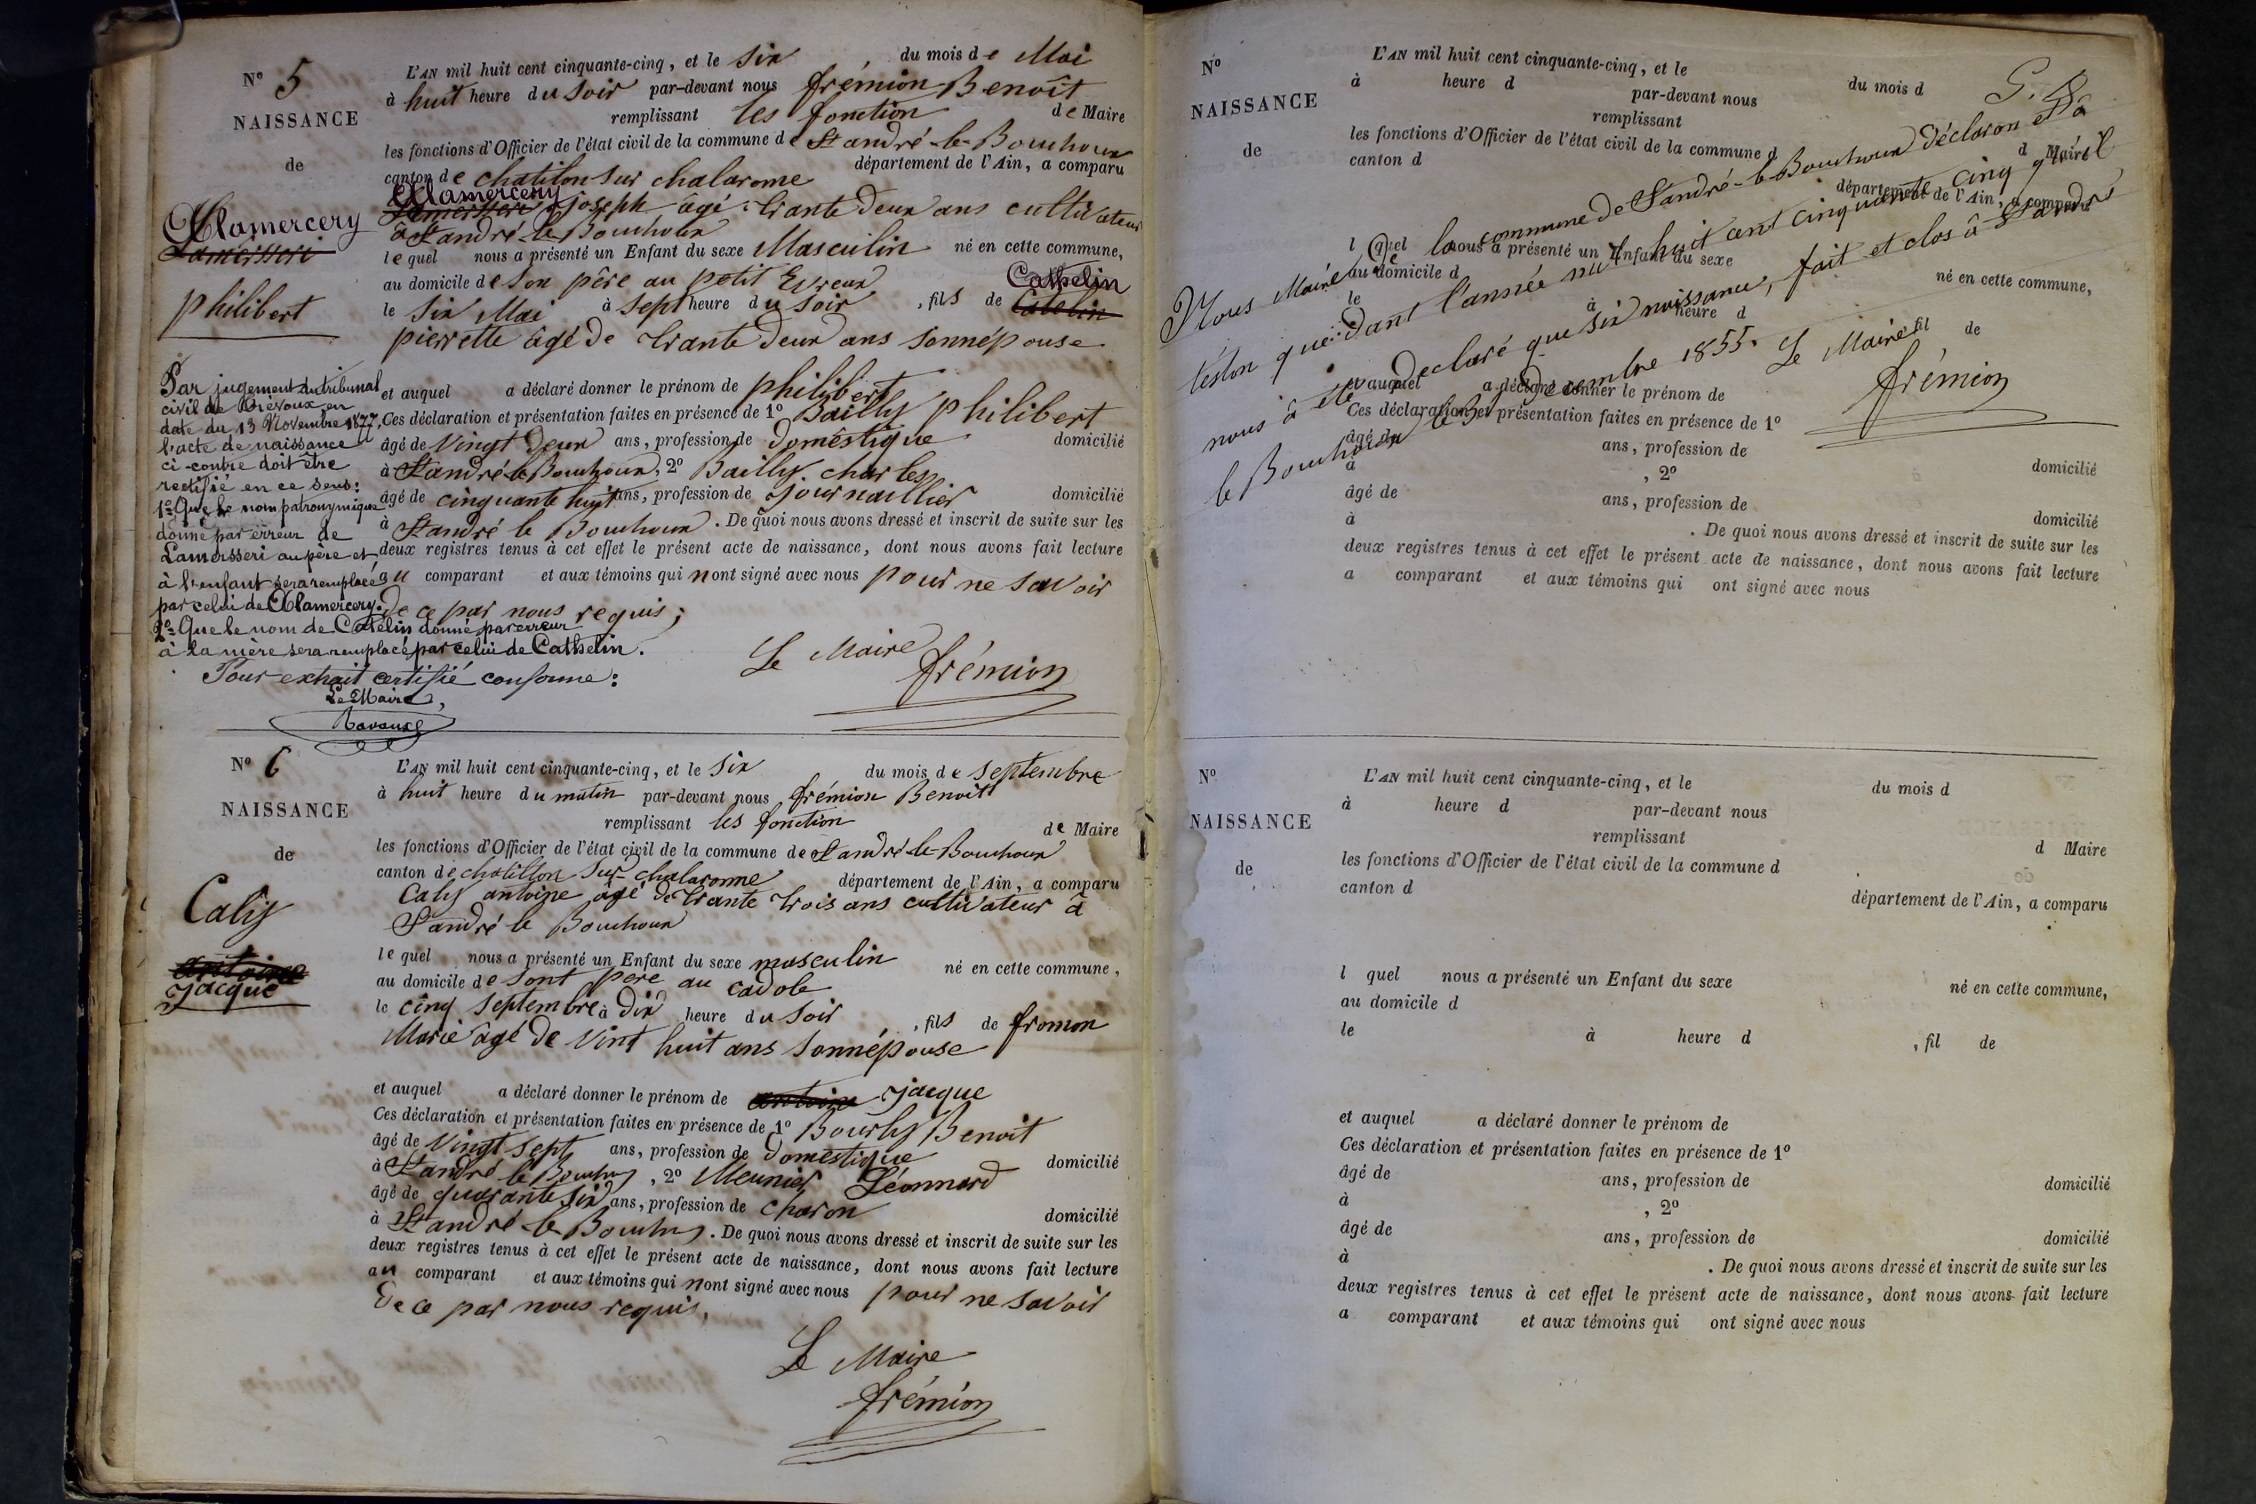 N° 5
NAISSANCE
de
Alamercery
Lamersseri
philibert
L'AN mil huit cent cinquante-cinq, et le six du mois de Mai
à huit heure du soir par-devant nous frémion Benoît
remplissant les fonction de Maire
les fonctions d'Officier de l'état civil de la commune de St andré-le-Bouchoux
canton de chatilon sur chalarome département de l'Ain, a comparu
Alamercery
Lamersseri joseph âgé trante deux ans cultivateur
à St andré-le-Bouchoux
le quel nous a présenté un Enfant du sexe Masculin né en cette commune,
au domicile de son père au petit Evreux
Cathelin
le six Mai à sept heure du soir, fils de Catelin
pierrette âgé de trante deux ans sonnépouse
et auquel a déclaré donner le prénom de philibert
Ces déclaration et présentation faites en présence de 1° Bailly philibert
âgé de Vingt deux ans, profession de domêstique domicilié
à St andré-le-Bouchoux, 2° Bailly charles
âgé de cinquante huit ans, profession de journaillier domicilié
à St andré le Bouchoux. De quoi nous avons dressé et inscrit de suite sur les
deux registres tenus à cet effet le présent acte de naissance, dont nous avons fait lecture
au comparant et aux témoins qui nont signé avec nous pour ne savoir
de ce par nous requis;
Le Maire
frémion
Par jugement du tribunal
civil de Trévoux en
date du 13 Novembre 1877,
l'acte de naissance
ci-contre doit être
rectifié en ce sens:
1° Que le nom patronymique
donné par erreur de
Lamersseri au père et
à l'enfant sera remplacé
par celui de Alamercery.
2° Que le nom de Catelin donné par erreur
à la mère sera remplacé par celui de Cathelin.
Pour extrait certifié conforme:
Le Maire,
N° 6
NAISSANCE
de
Caly
antoine
jacque
L'AN mil huit cent cinquante-cinq, et le six du mois de septembre
à huit heure du matin par-devant nous frémion Benoitt
remplissant les fonction de Maire
les fonctions d'Officier de l'état civil de la commune de St andré-le-Bouchoux
canton de chatillon sur chalaronne département de l'Ain, a comparu
Caly antoine âgé de trante trois ans cultivateur à
St andré le Bouchoux
le quel nous a présenté un Enfant du sexe masculin né en cette commune,
au domicile de sont père au cadole
le cinq septembre à dix heure du soir, fils de fromon
Marie âgé de Vint huit ans sonnépouse
et auquel a déclaré donner le prénom de antoine jacque
Ces déclaration et présentation faites en présence de 1° Bourly Benoit
âgé de Vingt sept ans, profession de domêstique
à St andré le Bouchx, 2° Meunier Léonnard domicilié
âgé de quarante six ans, profession de charon
à St andré-le-Bouchx. De quoi nous avons dressé et inscrit de suite sur les domicilié
deux registres tenus à cet effet le présent acte de naissance, dont nous avons fait lecture
au comparant et aux témoins qui nont signé avec nous pour ne savoir
de ce par nous requis,
Le Maire
frémion
N°
NAISSANCE
de
L'AN mil huit cent cinquante-cinq, et le du mois d
à heure d par-devant nous
remplissant
d Maire
les fonctions d'Officier de l'état civil de la commune d
canton d département de l'Ain, a comparu
l quel nous a présenté un Enfant du sexe né en cette commune,
au domicile d
le à heure d fil de
et auquel a déclaré donner le prénom de
Ces déclaration et présentation faites en présence de 1°
âgé de ans, profession de domicilié
à , 2°
âgé de ans, profession de domicilié
à . De quoi nous avons dressé et inscrit de suite sur les
deux registres tenus à cet effet le présent acte de naissance, dont nous avons fait lecture
a comparant et aux témoins qui ont signé avec nous
Nous Maire de la commune de St andré-le-Bouchoux déclaron
que dant l'année mil huit cent cinquante cinq qu'il
nous à été declaré que six naissance, fait et clos à St andré
le Bouchoux le 31 Decembre 1855.
Le Maire
frémion
N°
NAISSANCE
de
L'AN mil huit cent cinquante-cinq, et le du mois d
à heure d par-devant nous
remplissant
d Maire
les fonctions d'Officier de l'état civil de la commune d
canton d département de l'Ain, a comparu
l quel nous a présenté un Enfant du sexe né en cette commune,
au domicile d
le à heure d , fil de
et auquel a déclaré donner le prénom de
Ces déclaration et présentation faites en présence de 1°
âgé de ans, profession de domicilié
à , 2°
âgé de ans, profession de domicilié
à . De quoi nous avons dressé et inscrit de suite sur les
deux registres tenus à cet effet le présent acte de naissance, dont nous avons fait lecture
a comparant et aux témoins qui ont signé avec nous